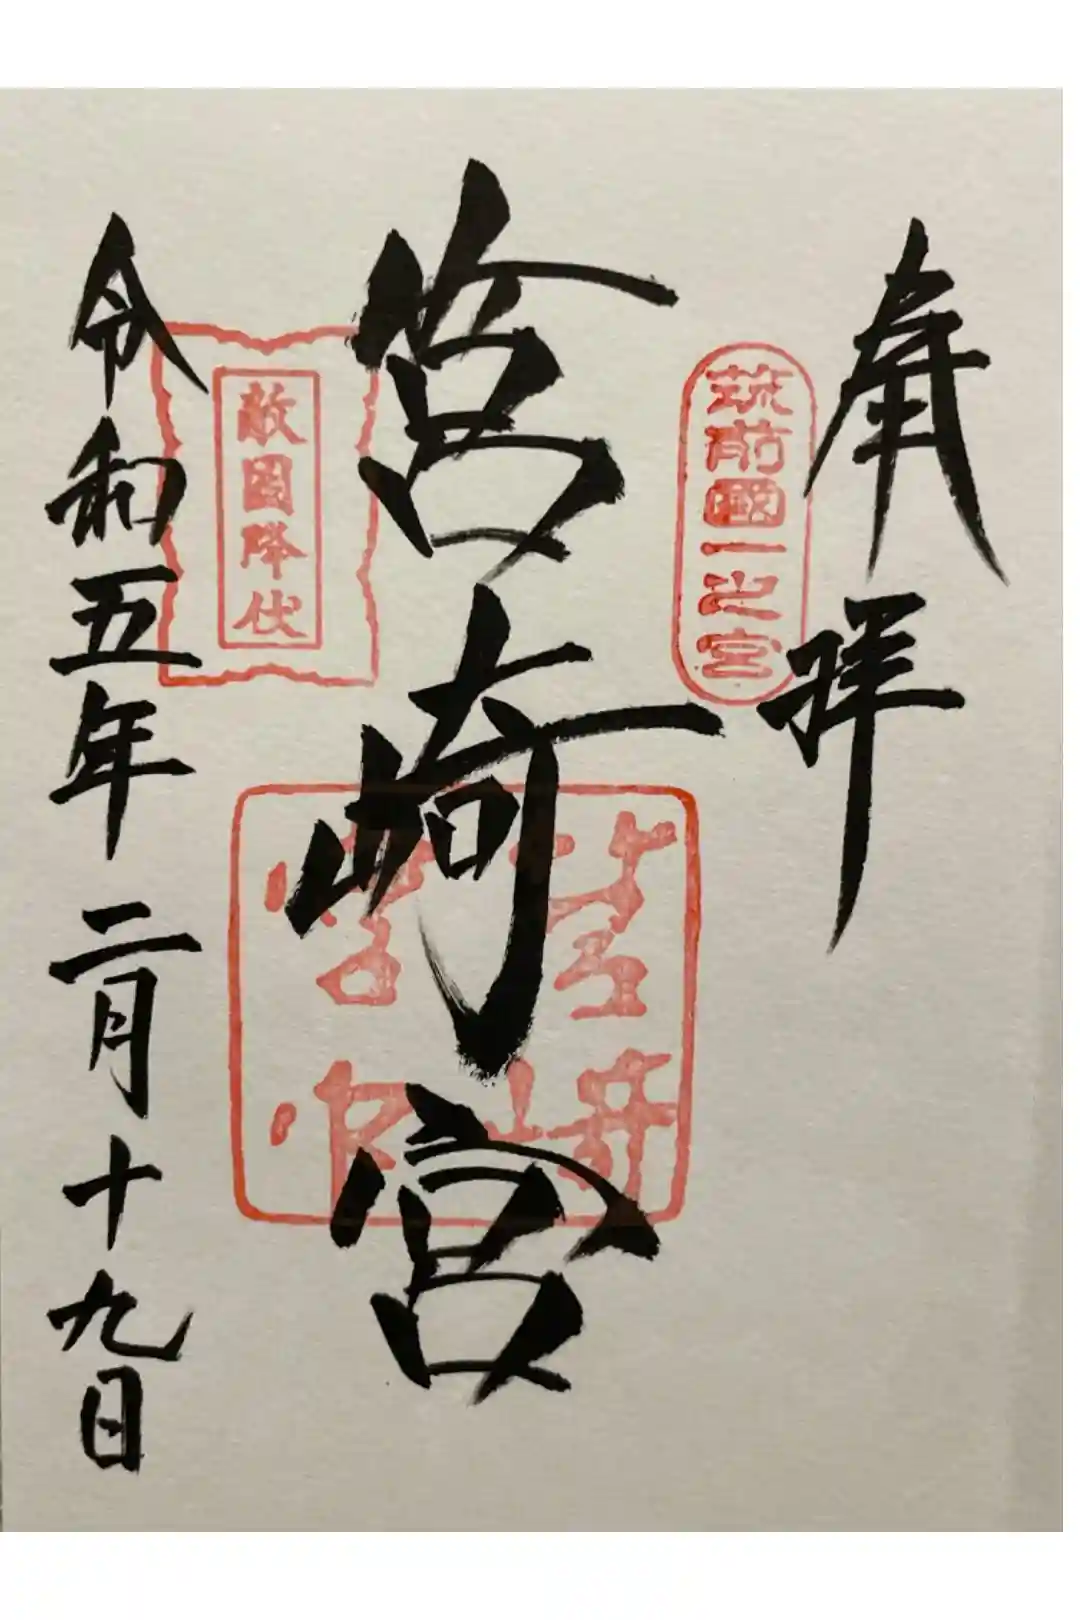 奉拝
筑前國一之宮
筥崎宮
筥崎
宮印
敵國降伏
令和五年二月十九日